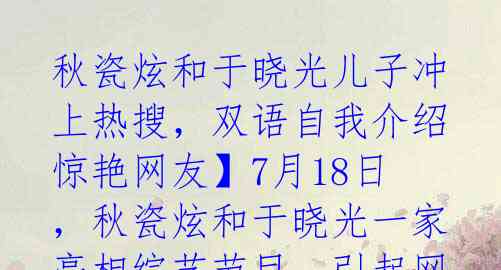 秋瓷炫和于晓光儿子冲
上热搜，双语自我介绍
惊艳网友】7月18日
，秋瓷炫和于晓光一家
亮相综艺节目，引起网